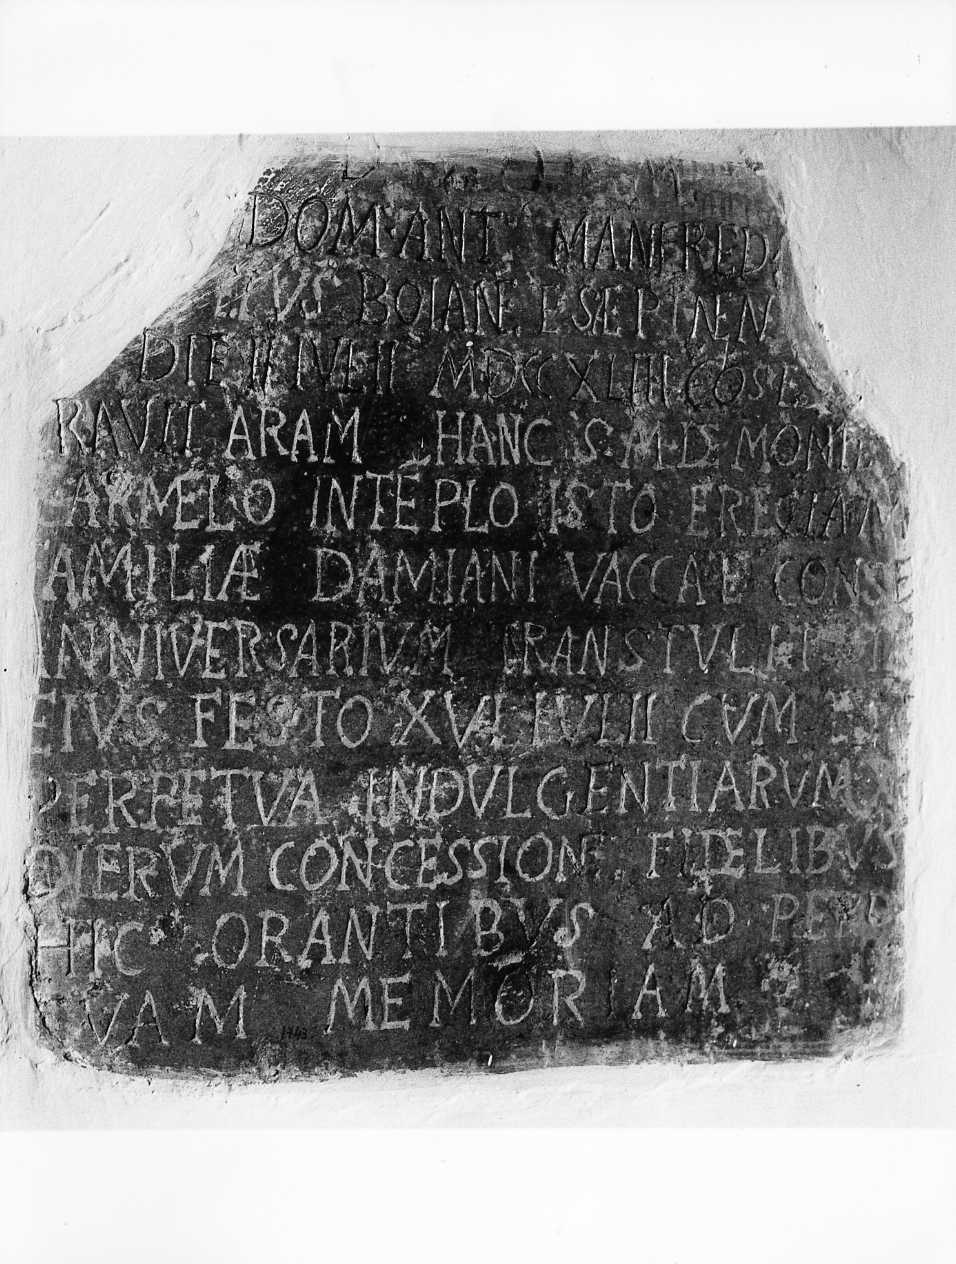 DOM. ANT. MANFRED
EPVS BOIANEÑSEPINEN
DIE II IVLII MDCCXLIII COSE
RAVIT ARAM HANC S. M. DE MONTE
CARMELO INTEPLO ISTO ERECTAM
FAMILIÆ DAMIANI VACCA E CONSE
ANNIVERSARIVM TRANSTVLIT
EIVS FESTO XVI IVLII CVM
PERPETVA INDVLGENTIARVM
DIERVM CONCESSION FIDELIBVS
HIC ORANTIBVS AD PERP
VAM MEMORIAM
1743